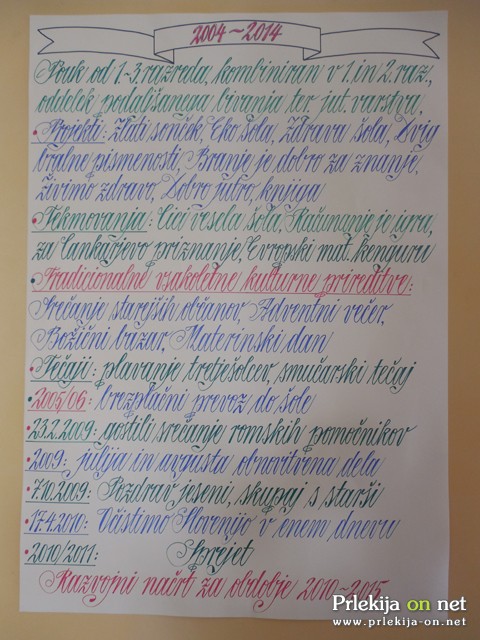 2004~2014
Pouk od 1.-3. razreda, kombiniran v 1. in 2. raz.,
oddelek podaljšanega bivanja ter jut. varstva,
• Projekti: Zlati sonček, Eko šola, Zdrava šola, Dvig
bralne pismenosti, Branje je dobro za znanje,
Živimo zdravo, Dobro jutro, knjiga
• Tekmovanja: Cici vesela šola, Računanje je igra,
za Cankarjevo priznanje, Evropski mat. kenguru
• Tradicionalne vsakoletne kulturne prireditve:
Srečanje starejših občanov, Adventni večer,
Božični bazar, Materinski dan
• Tečaji: plavanje tretješolcev, smučarski tečaj
• 2005/06: brezplačni prevoz do šole
• 23.2.2009: gostili srečanje romskih pomočnikov
• 2009: julija in avgusta obnovitvena dela
• 7.10.2009: Pozdrav jeseni, skupaj s starši
• 17.4.2010: Očistimo Slovenijo v enem dnevu
• 2010/2011: Sprejet
Razvojni načrt za obdobje 2010~2015
Prlekija on net
www.prlekija-on.net